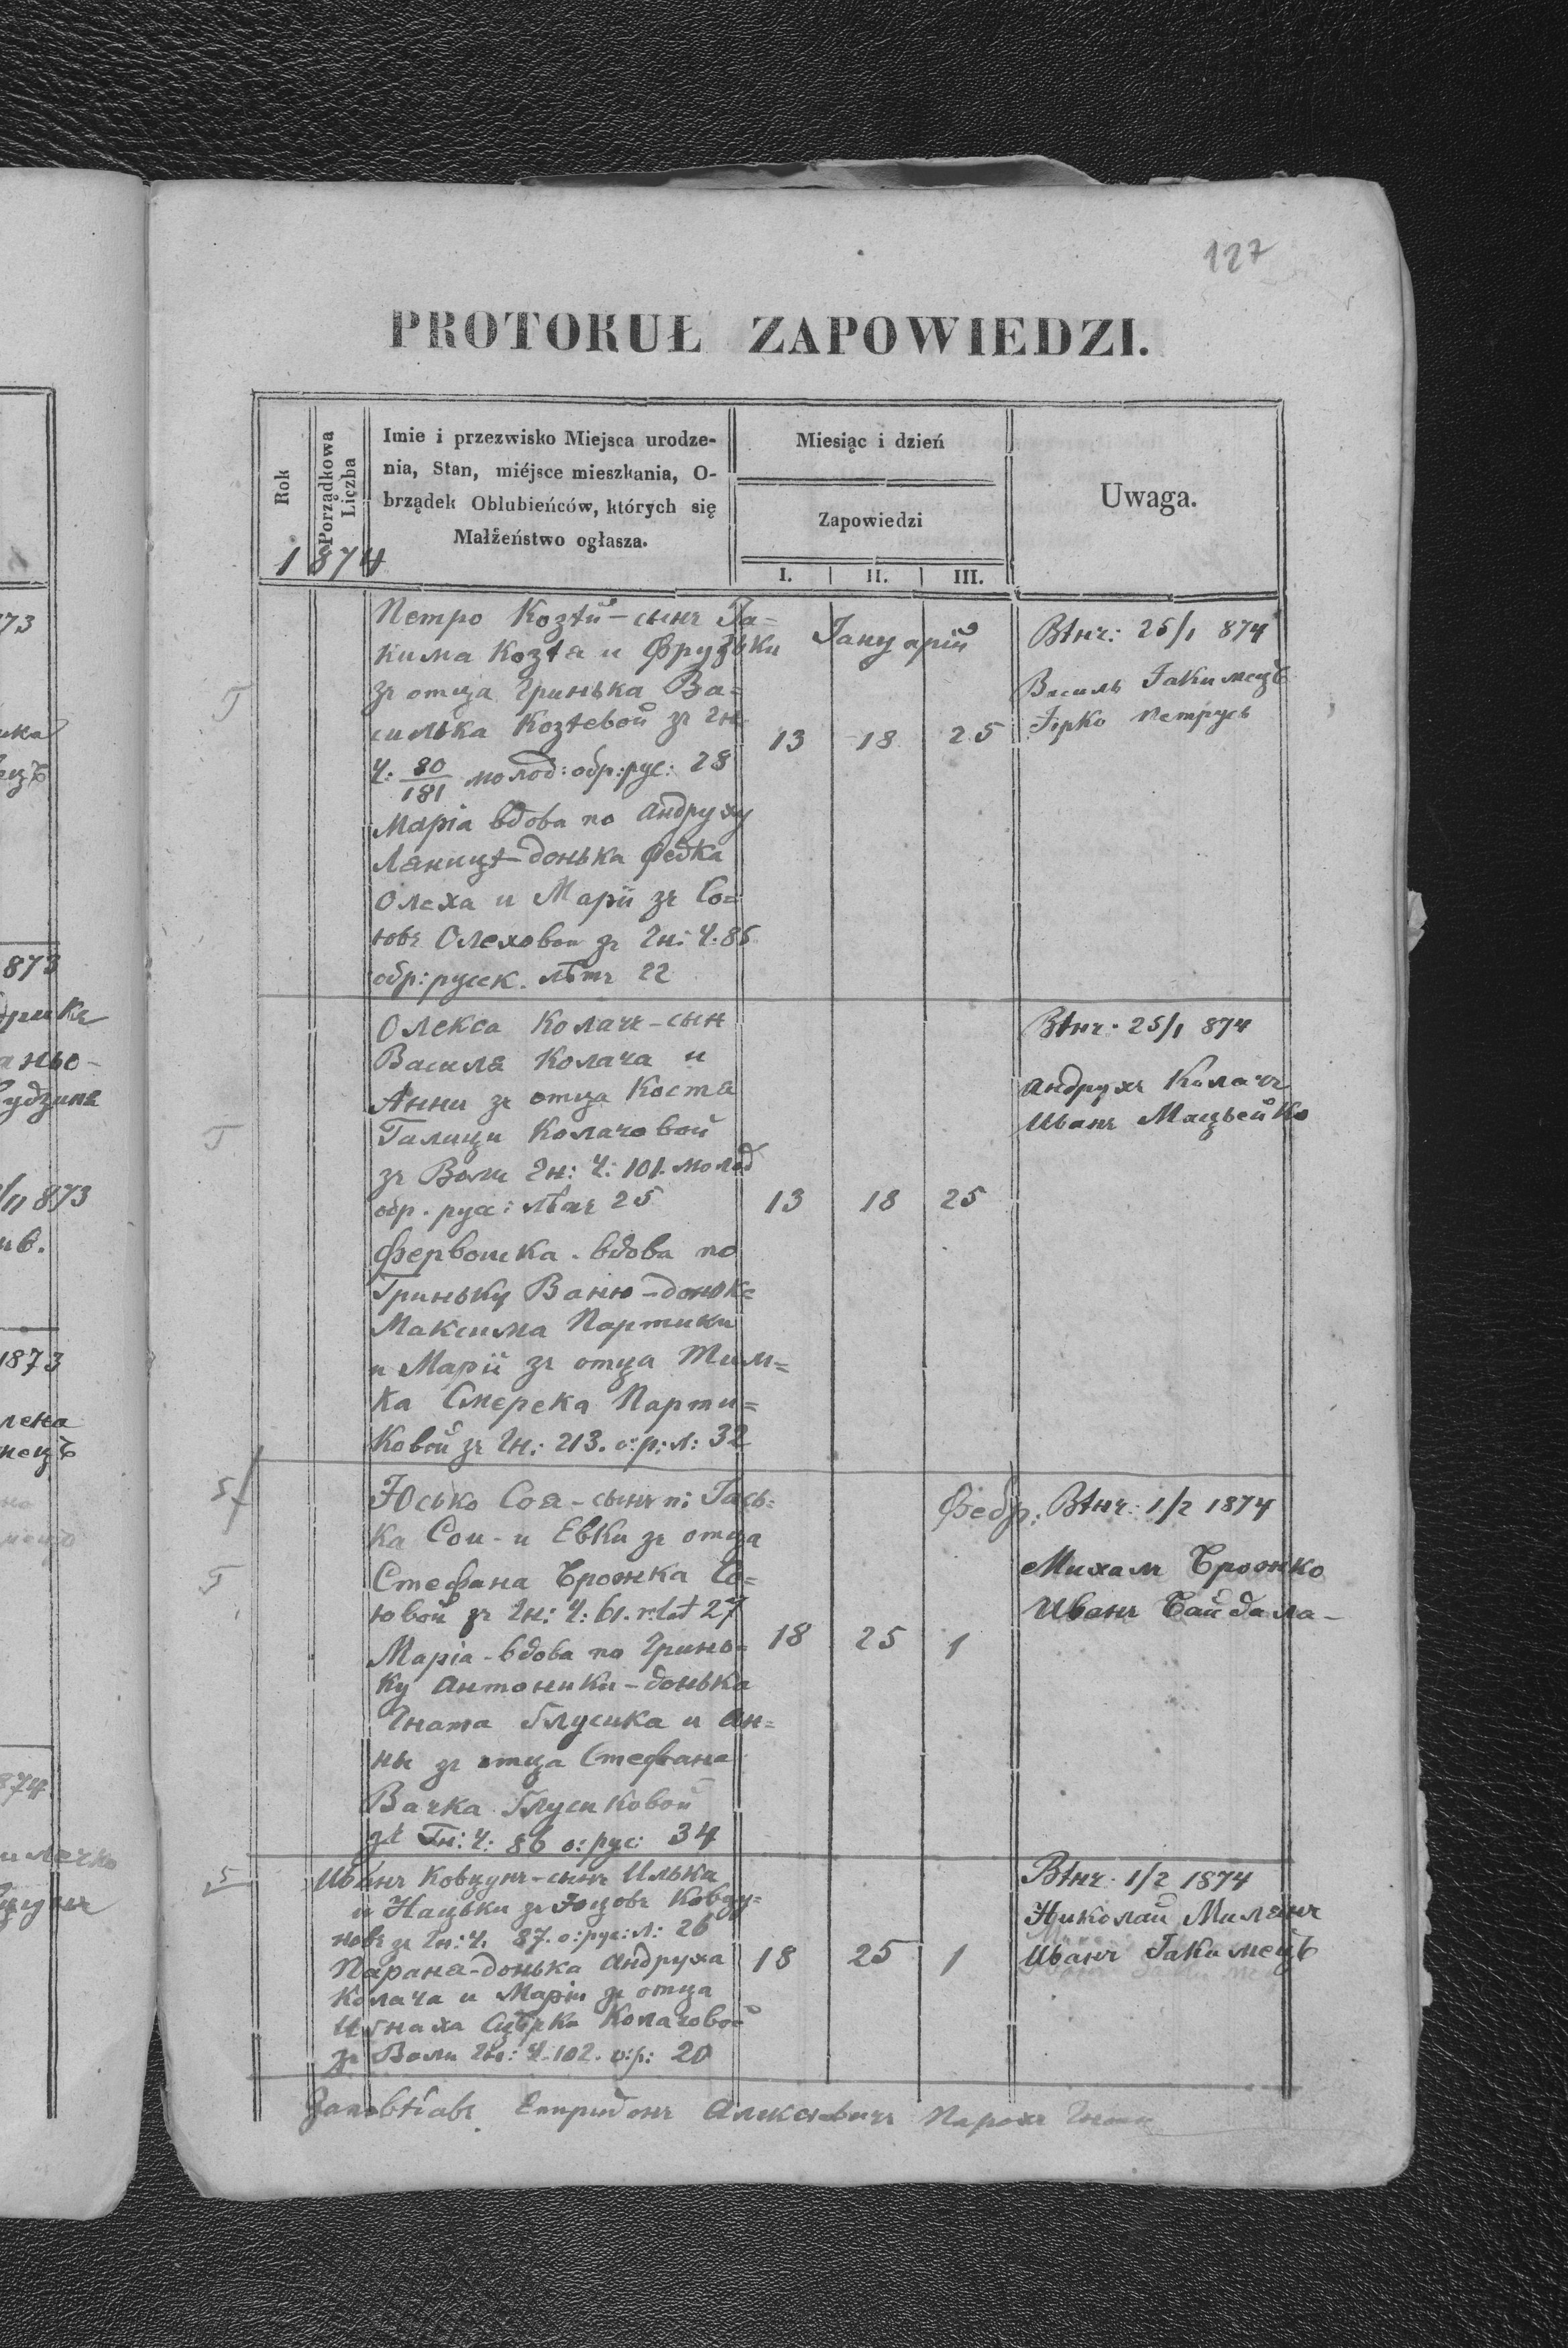 127
PROTOKUŁ ZAPOWIEDZI.
Rok
Porządkowa
Liczba
Imie i przezwisko Miejsca urodze-
nia, Stan, miéjsce mieszkania, O-
brządek Oblubieńców, których się
Małżeństwo ogłasza.
Miesiąc i dzień
Zapowiedzi
I. II. III.
Uwaga.
1874
Петро Козѣй - сынъ Га=
кима Козѣя и Фрузьки
зъ отца Гринька Ва=
силька Козѣевой зъ Гн.
Ч: 80/181 молод: обр: рус: 28
Марія вдова по Андруху
донька Федка
Олеха и Маріи зъ Со=
ювъ Олеховои зъ Гн: Ч: 86
обр: русск. лѣтъ 22
Іануарій
13 18 25
Вѣнч: 25/1 874
Василь Іакимецъ
Петрусь
Олекса Колачъ - сын
Василя Колача и
Анни зъ отца Костя
Галици Колачовой
зъ Воли Гн: Ч: 101. молод
обр. рус: лѣтъ 25
вдова по
Гриньку Ваню - донька
Максима Партики
и Маріи зъ отца Тим=
ка Смерека Парти=
ковой зъ Гн: 213. о: р: л: 32
13 18 25
Вѣнч. 25/1 874
Андрухъ Колачъ
Иванъ Мацьейко
Юсько Соя - сынъ п: Гась=
ка Сои - и Евки зъ отца
Стефана Брожка Со=
ювой зъ Гн: Ч: 61. 27
Марія - вдова по Гринь=
ку Антоники - донька
Гната Глусика и Ан=
ны зъ отца Стефана
Вачка Глусиковой
зъ Гн: Ч: 86 о: рус: 34
Февр:
18 25 1
Вѣнч: 1/2 1874
Михаил Брожко
Иванъ Байдала -
Иванъ Ковцунъ - сынъ Илька
и Нацьки зъ Юцовъ Ковцу=
новъ зъ Гн: Ч. 87. о: рус: л: 26
Параня - донька Андруха
Колача и Маріи зъ отца
Колачовой
зъ Воли Гн: Ч. 102. о: р: 20
18 25 1
Вѣнч. 1/2 1874
Николай Милянъ
Иванъ Іакимецъ
Заповѣдавъ Спиридонъ Алексѣвичъ Парохъ